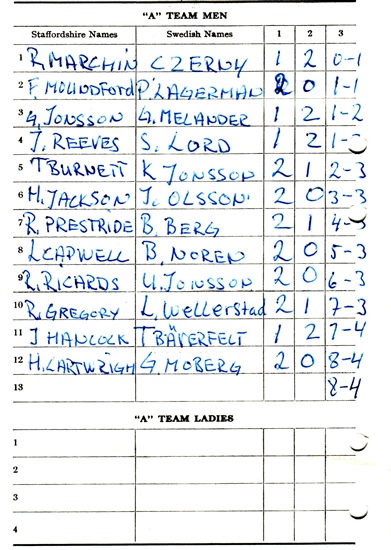 "A" TEAM MEN
Staffordshire Names Swedish Names 1 2 3
1 R. MARCHIN CZERNY 1 2 0-1
2 F. MOUNDFORD P. LAGERMAN 2 0 1-1
3 G. JONSSON G. MELANDER 1 2 1-2
4 J. REEVES S. LORD 1 2
5 T BURNETT K JONSSON 2 1 2-3
6 M. JACKSON J. OLSSON 2 0 3-3
7 R. PRESTRIDE B. BERG 2 1
8 L CAPWELL B. NOREN 2 0 5-3
9 R. RICARDS U. JONSSON 2 0 6-3
10 R. GREGORY L. Wellerstad 2 1 7-3
11 J HANCOCK T BÄVERFELT 1 2 7-4
12 H. CARTWRIGH G. MOBERG 2 0 8-4
13 8-4
"A" TEAM LADIES
1
2
3
4